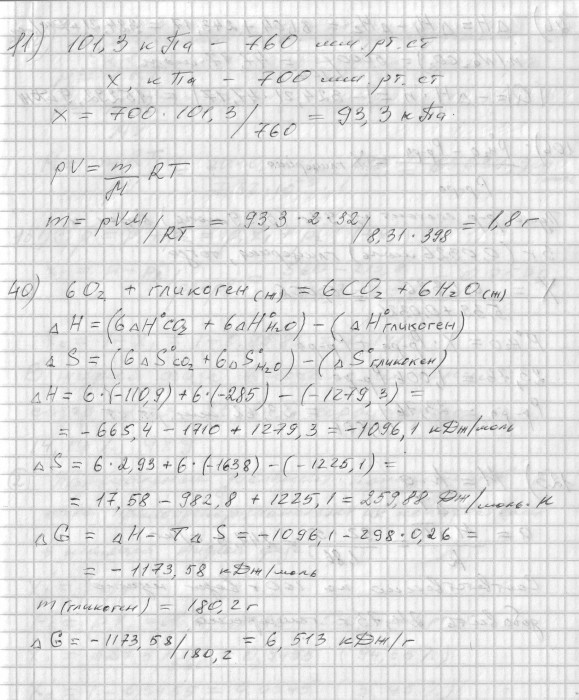 11) 101,3 кПа – 760 мм.рт.ст
х, кПа – 700 мм.рт.ст
х = 700·101,3/760 = 93,3 кПа.
pV = m/M RT
m = pVM/RT = 93,3·2·32/8,31·398 = 1,8 г
40) 6O₂ + гликоген(т) = 6CO₂ + 6H₂O(ж)
ΔH = (6ΔH°CO₂ + 6ΔH°H₂O) – (ΔH°гликоген)
ΔS = (6ΔS°CO₂ + 6ΔS°H₂O) – (ΔS°гликоген)
ΔH = 6·(-110,9) + 6·(-285) – (-1279,3) =
= -665,4 – 1710 + 1279,3 = -1096,1 кДж/моль
ΔS = 6·2,93 + 6·(-163,8) – (-1225,1) =
= 17,58 – 982,8 + 1225,1 = 259,88 Дж/моль·К
ΔG = ΔH – TΔS = -1096,1 – 298·0,26 =
= -1173,58 кДж/моль
m(гликоген) = 180,2 г
ΔG = -1173,58/180,2 = 6,513 кДж/г